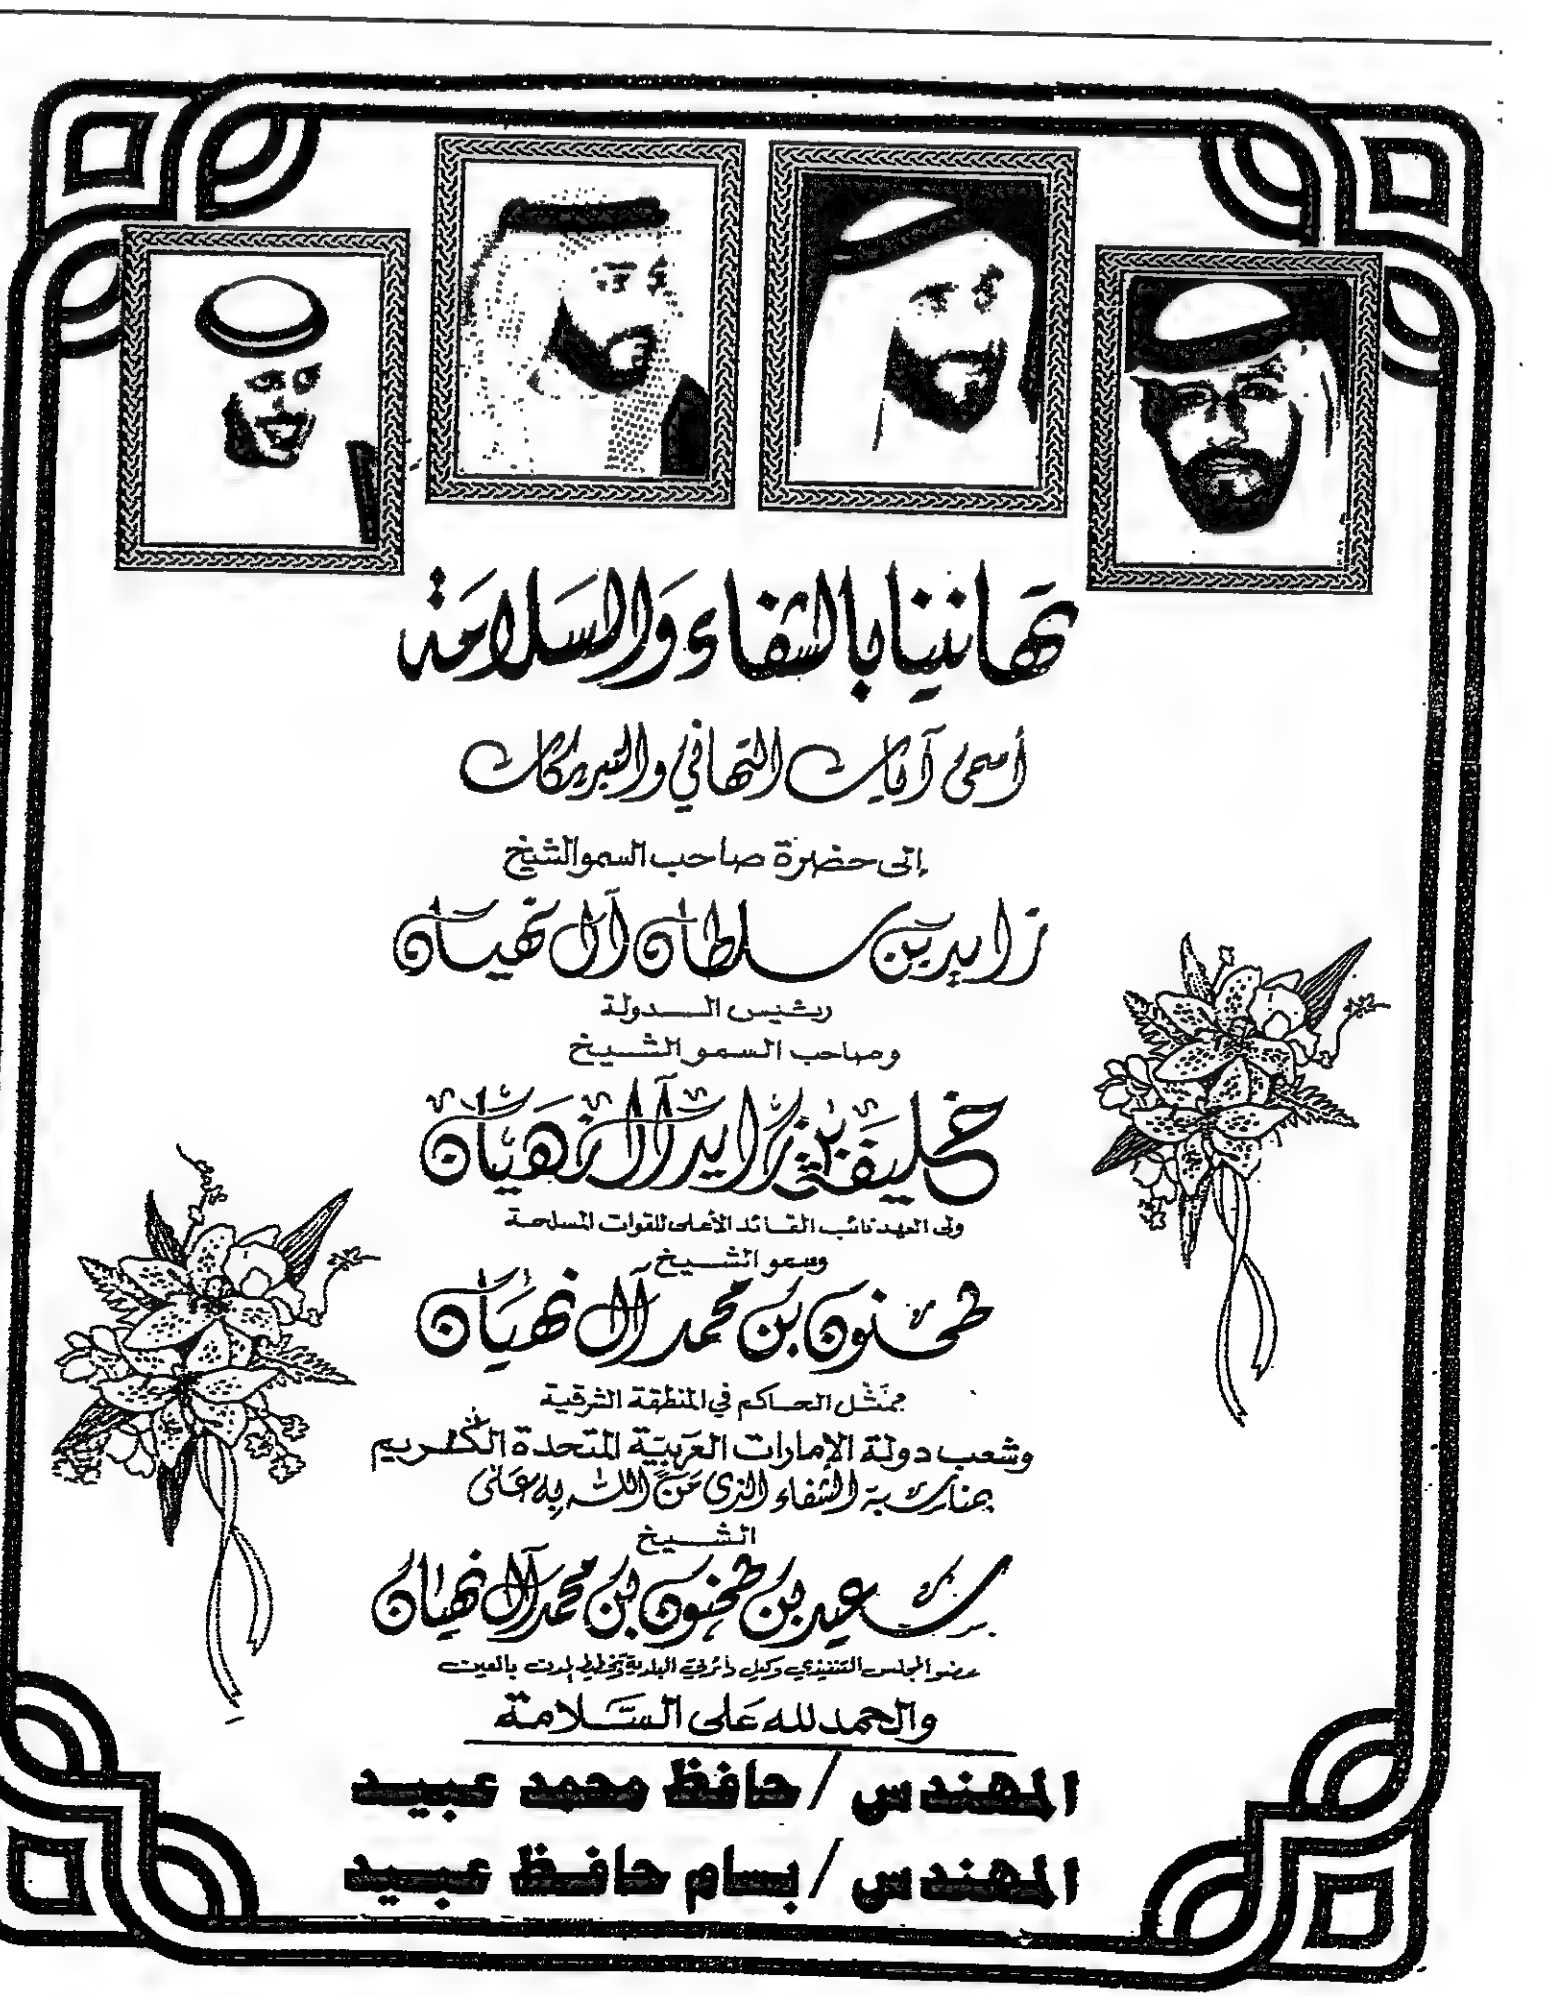 تهانينا بالشفاء والسلامة
أسمى آيات التهاني والتبريكات
إلى حضرة صاحب السمو الشيخ
زايد بن سلطان آل نهيان
رئيس الدولة
وصاحب السمو الشيخ
خليفة بن زايد آل نهيان
ولي العهد نائب القائد الأعلى للقوات المسلحة
وسمو الشيخ
طحنون بن محمد آل نهيان
ممثل الحاكم في المنطقة الشرقية
وشعب دولة الإمارات العربية المتحدة الكريم
بمناسبة الشفاء الذي مَنَّ الله به على
الشيخ
سعيد بن طحنون بن محمد آل نهيان
عضو المجلس التنفيذي وكيل دائرتي البلدية وتخطيط المدن بالعين
والحمد لله على السلامة
المهندس / حافظ محمد عبيد
المهندس / بسام حافظ عبيد